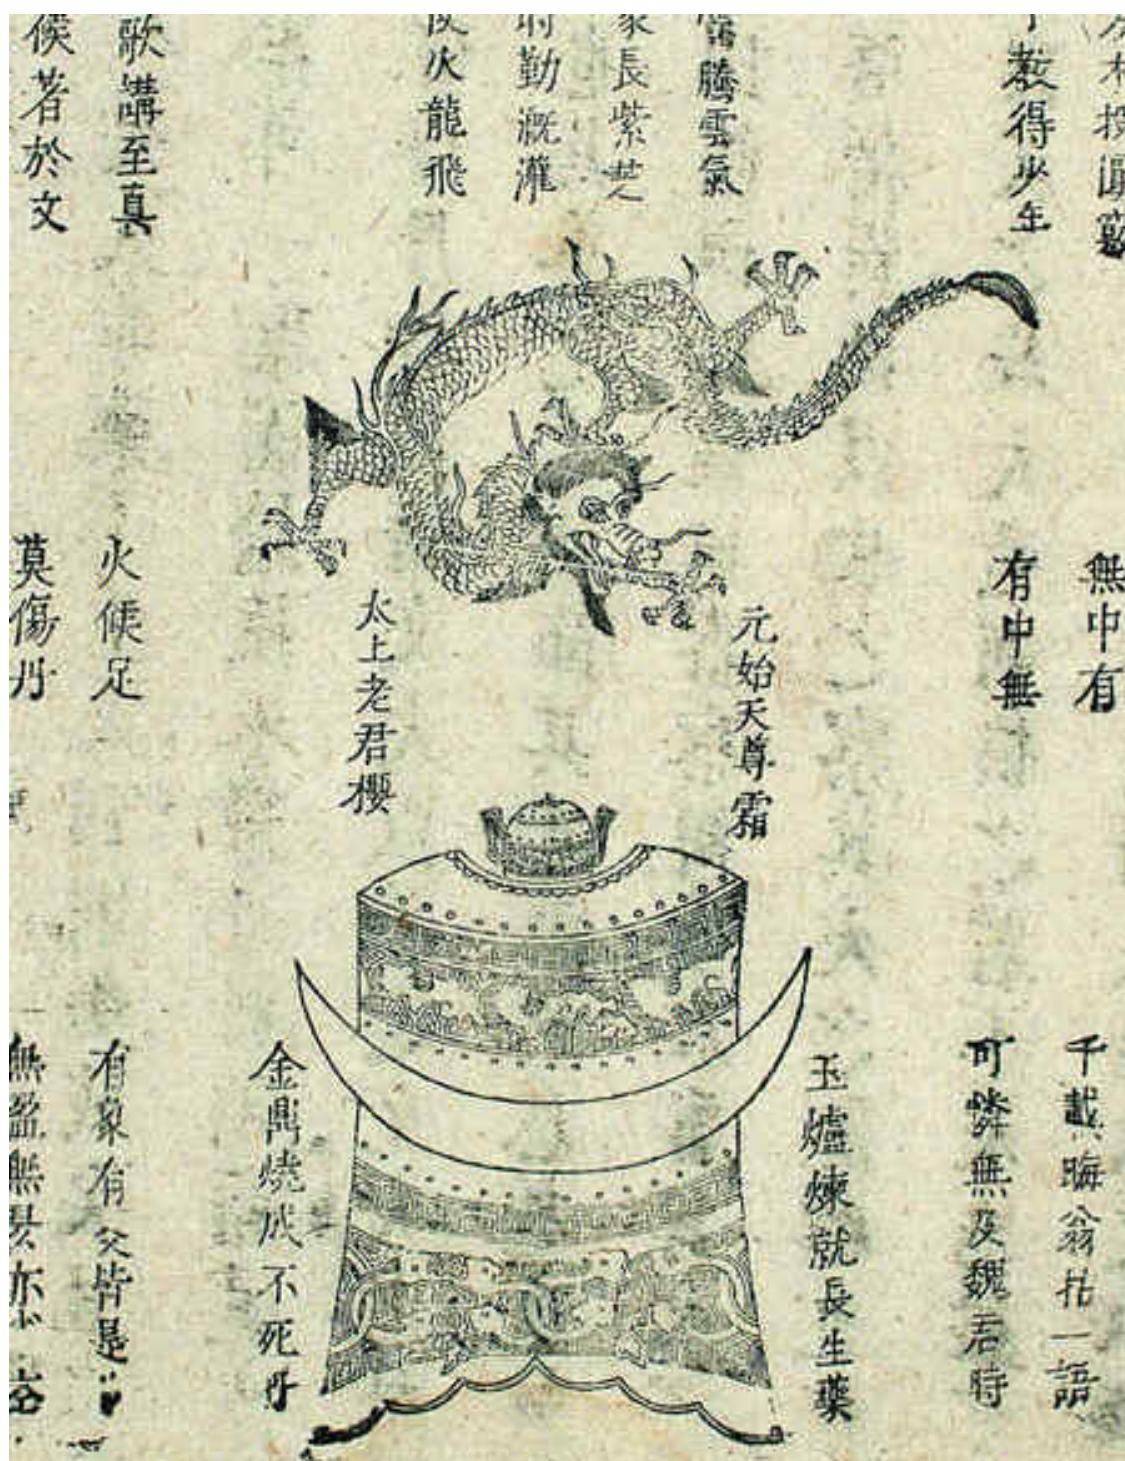 教得少年
騰雲氣
長紫芝
勤溉灌
火龍飛
歌講至真
候著於文
無中有
有中無
元始天尊霜
太上老君櫻
火候足
莫傷丹
千載晦翁拈一語
可憐無及魏君時
玉爐煉就長生藥
金鼎燒成不死丹
有象有爻皆是
無盈無昃亦